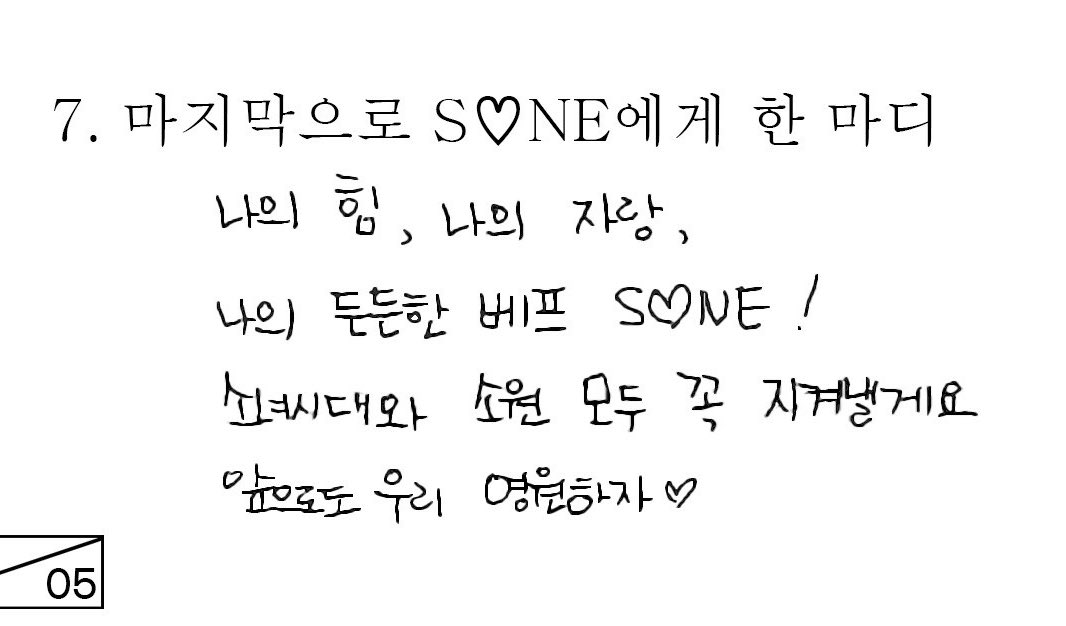 7. 마지막으로 S♡NE에게 한 마디
나의 힘, 나의 자랑,
나의 든든한 베프 S♡NE!
소녀시대와 소원 모두 꼭 지켜낼게요
앞으로도 우리 영원하자♡
05